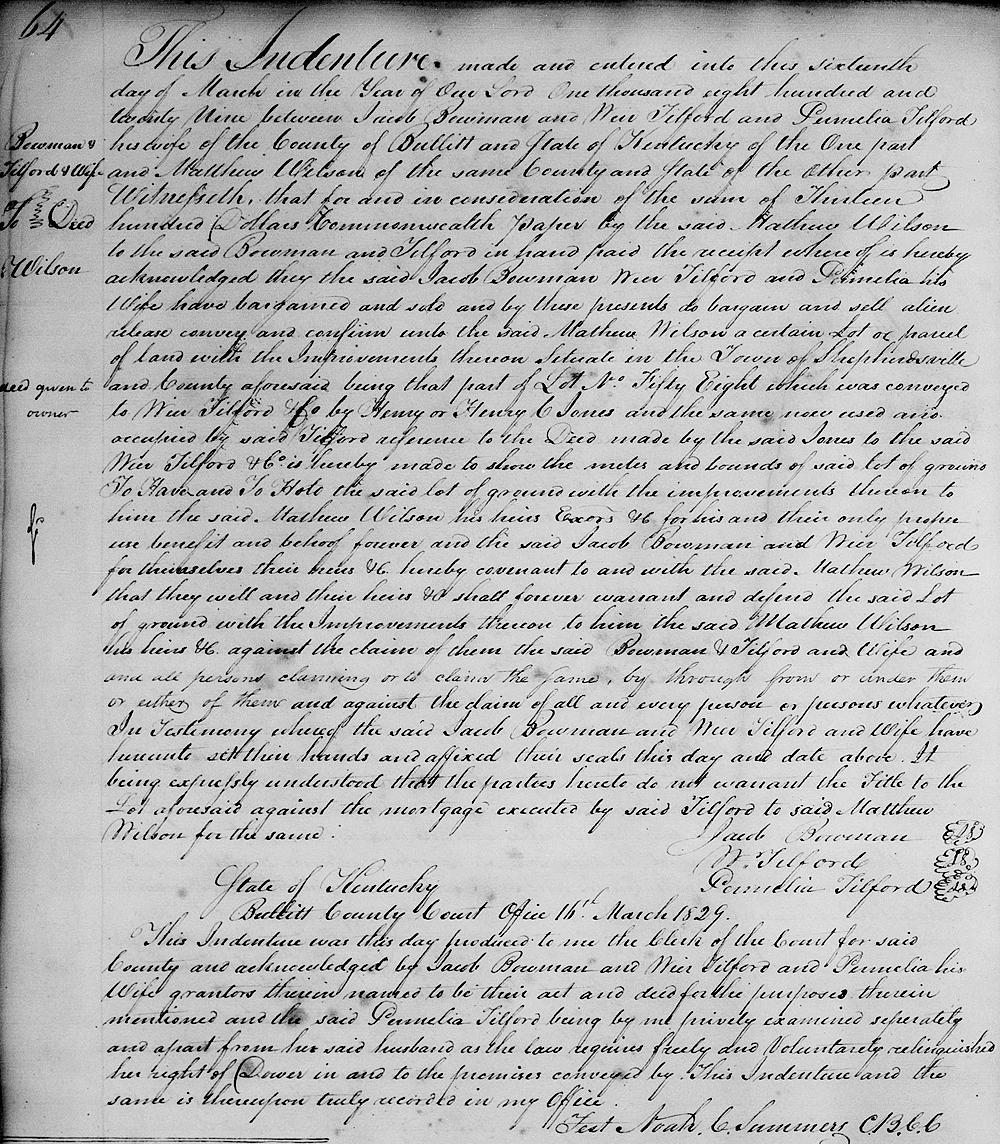 64
This Indenture made and entered into this sixteenth
day of March in the Year of Our Lord One thousand eight hundred and
twenty Nine between Jacob Bowman and Wier Tilford and Permelia Tilford
Bowman &
his wife of the County of Bullitt and State of Kentucky of the One part
Tilford & Wife
and Matthew Wilson of the same County and State of the Other part
Witnesseth, that for and in consideration of the sum of Thirteen
To Deed
hundred Dollars Commonwealth paper by the said Mathew Wilson
to the said Bowman and Tilford in hand paid the receipt where of is hereby
Wilson
acknowledged they the said Jacob Bowman Wier Tilford and Permelia his
Wife have bargained and sold and by these presents do bargain and sell alien
release convey and confirm unto the said Mathew Wilson a certain Lot or parcel
of land with the Improvements thereon Situate in the Town of Shepherdsville
deed given to
and County aforesaid being that part of Lot No. Fifty Eight which was conveyed
owner
to Wier Tilford & Co by Henry or Henry C Jones and the same now used and
occupied by said Tilford reference to the Deed made by the said Jones to the said
Wier Tilford & Co is hereby made to show the metes and bounds of said lot of ground
To Have and To Hold the said lot of ground with the improvements thereon to
him the said Mathew Wilson his heirs Excors &c for his and their only proper
use benefit and behoof forever and the said Jacob Bowman and Wier Tilford
for themselves their heirs &c. hereby covenant to and with the said Mathew Wilson
that they will and their heirs &c shall forever warrant and defend the said Lot
of ground with the Improvements thereon to him the said Mathew Wilson
his heirs &c. against the claim of them the said Bowman & Tilford and Wife and
and all persons claiming or to claim the same, by through from or under them
or either of them and against the claim of all and every person or persons whatever
In Testimony whereof the said Jacob Bowman and Wier Tilford and Wife have
hereunto set their hands and affixed their seals this day and date above. It
being expressly understood that the parties hereto do not warrant the Title to the
Lot aforesaid against the mortgage executed by said Tilford to said Matthew
Wilson for the same.
Jacob Bowman
W. Tilford
Permelia Tilford
State of Kentucky
Bullitt County Court Office 16th March 1829.
This Indenture was this day produced to me the Clerk of the Court for said
County and acknowledged by Jacob Bowman and Wier Tilford and Permelia his
Wife grantors therein named to be their act and deed for the purposes therein
mentioned and the said Permelia Tilford being by me privily examined seperately
and apart from her said husband as the law requires freely and Voluntarely relinquished
her right of Dower in and to the premises conveyed by This Indenture and the
same is thereupon truly recorded in my Office.
Test Noah. C. Summers C B. C C